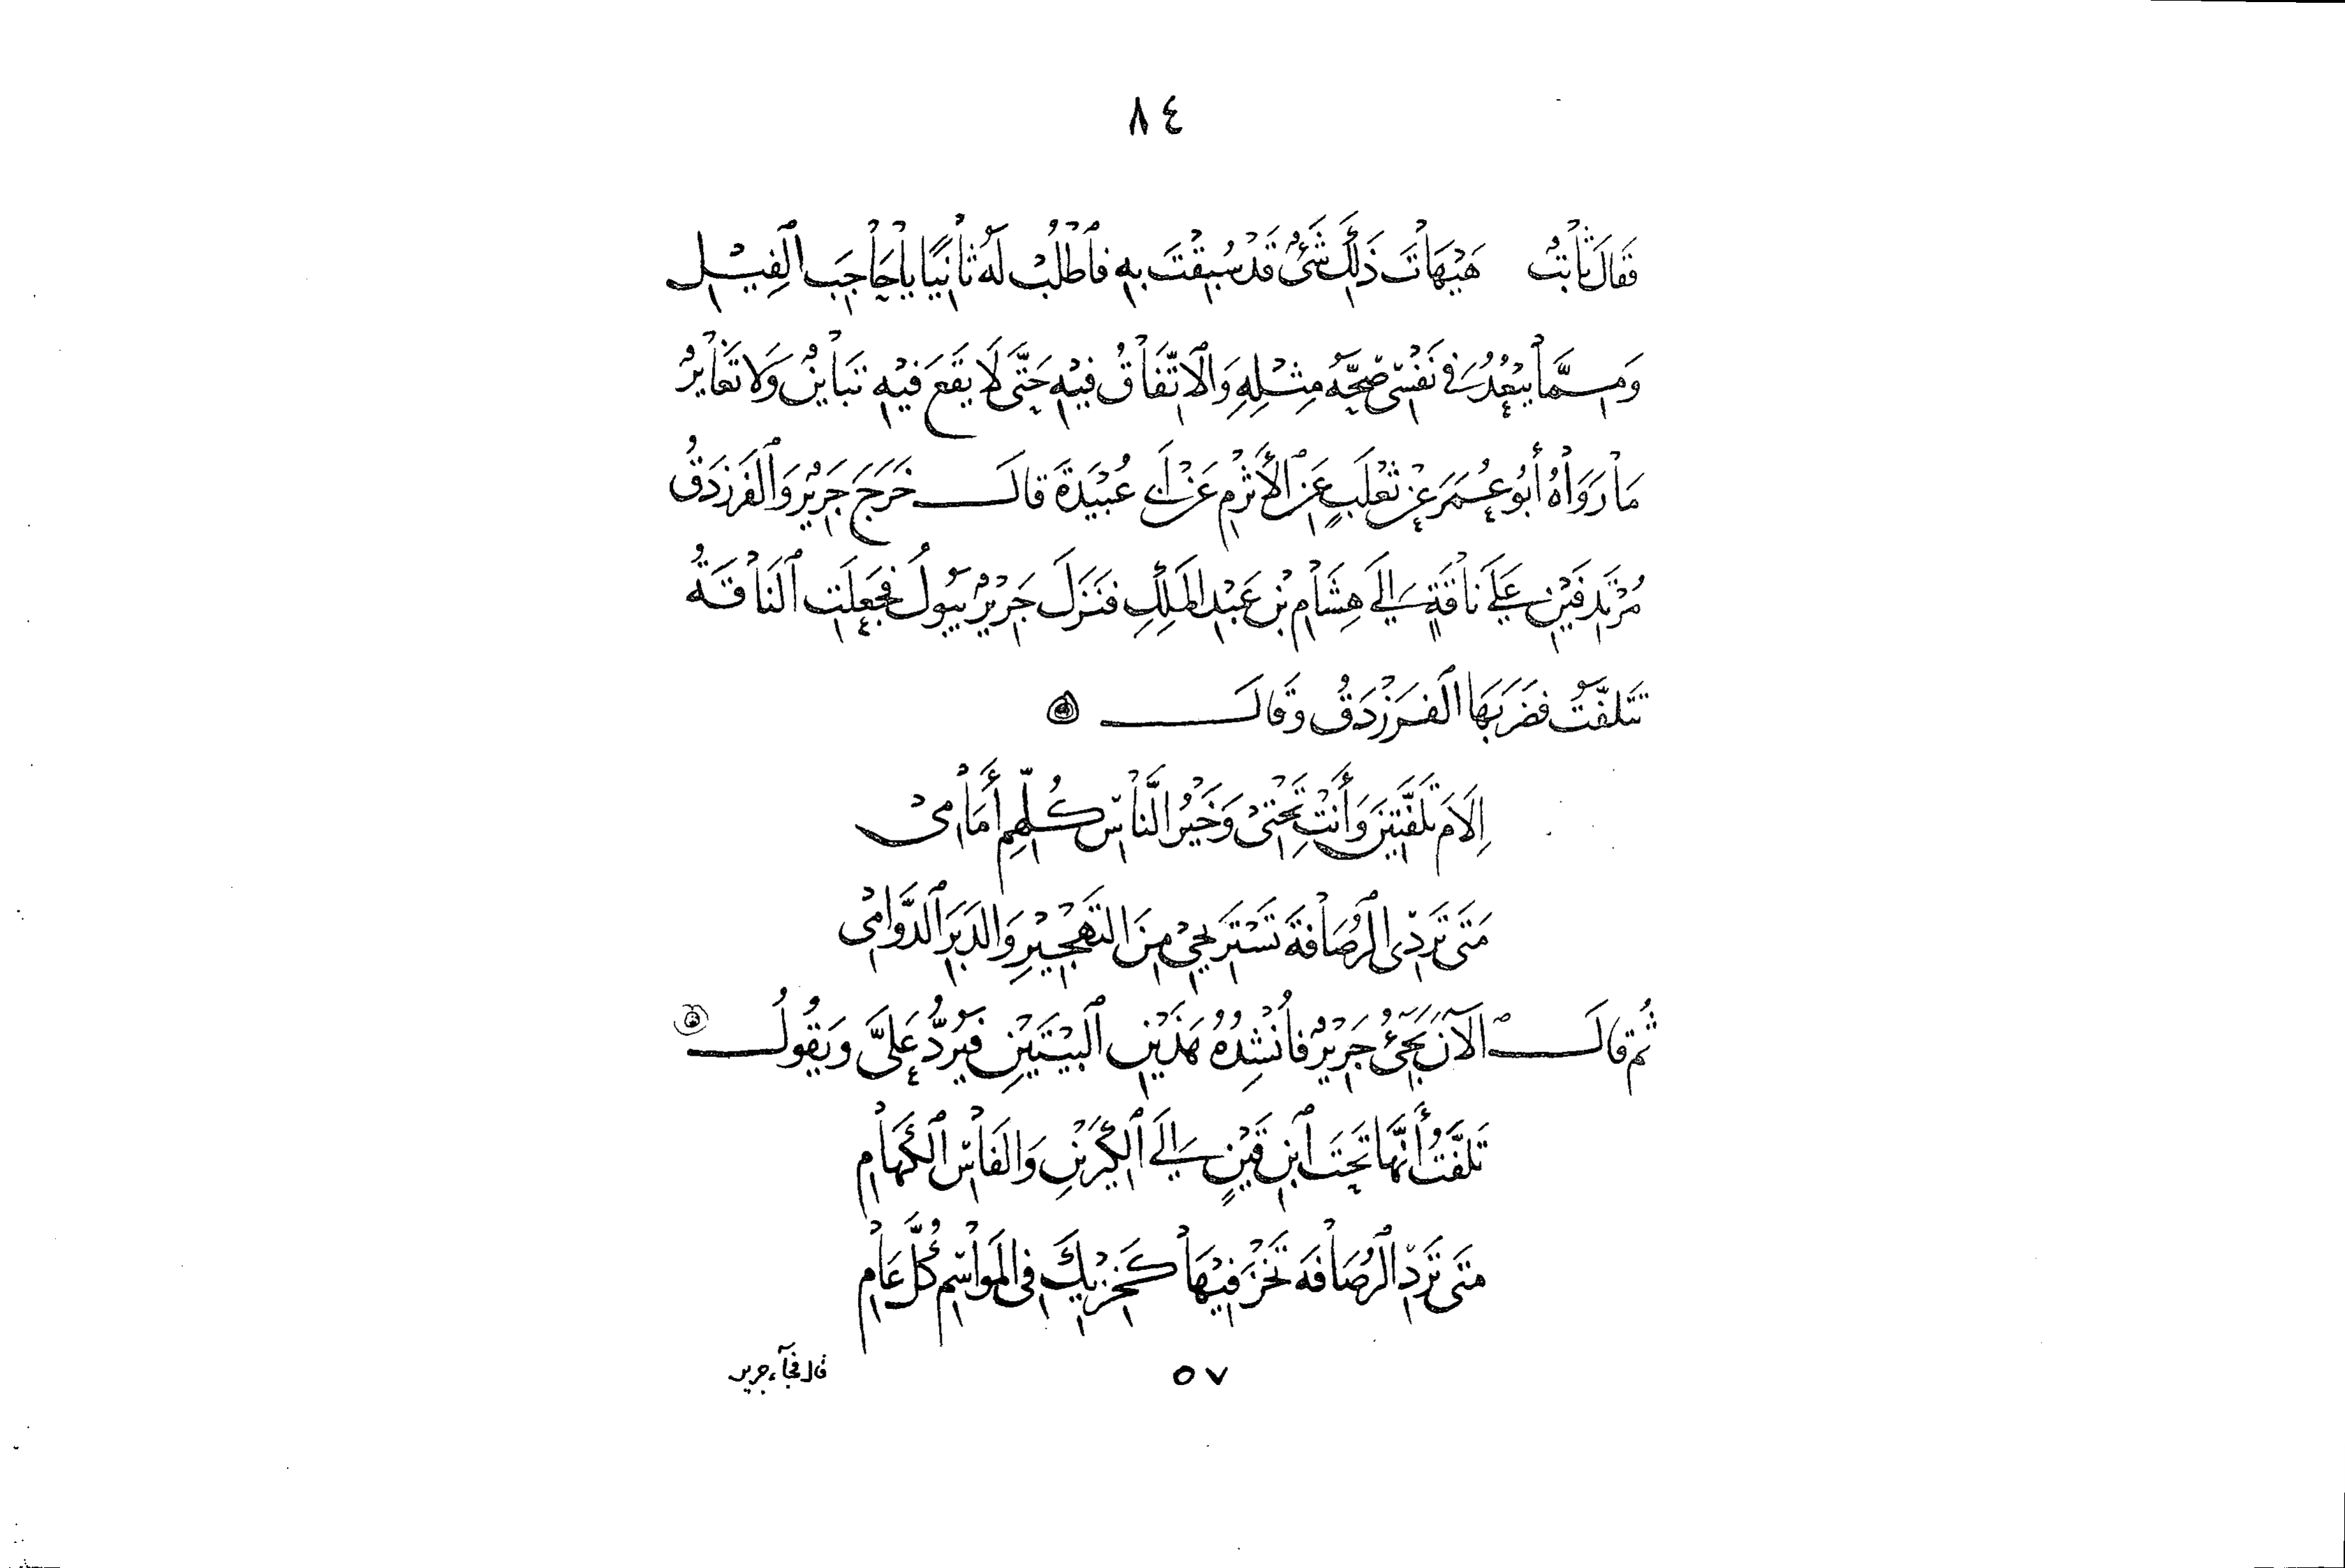 ٨٤
فَقَالَ ثَابْتُ هَيْهَاتَ ذَلِكَ شَيْءٌ قَدْ سُبِقْتَ بِهِ فَاطْلُبْ لَهُ ثَانِيًا يَا حَاجِبَ الْفِيْلِ
وَمِمَّا يَبْعُدُ فِي نَفْسِي صِحَّةُ مِثْلِهِ وَالاتِّفَاقُ فِيْهِ حَتَّى لَا يَقَعَ فِيْهِ تَبَايُنٌ وَلَا تَغَايُرٌ
مَا رَوَاهُ أَبُو عُمَرَ عَنْ ثَعْلَبٍ عَنِ الأَثْرَمِ عَنْ أَبِي عُبَيْدَةَ قَالَ خَرَجَ جَرِيْرٌ وَالْفَرَزْدَقُ
مُرْتَدِفَيْنِ عَلَى نَاقَةٍ إِلَى هِشَامِ بْنِ عَبْدِ الْمَلِكِ فَنَزَلَ جَرِيْرٌ يَبُولُ فَجَعَلَتِ النَّاقَةُ
تَتَلَفَّتُ فَضَرَبَهَا الْفَرَزْدَقُ وَقَالَ
إِلَامَ تَلَفَّتِيْنَ وَأَنْتِ تَحْتِي وَخَيْرُ النَّاسِ كُلِّهِمِ أَمَامِي
مَتَى تَرِدِي الرُّصَافَةَ تَسْتَرِيْحِي مِنَ التَّهْجِيْرِ وَالدَّبَرِ الدَّوَامِي
ثُمَّ قَالَ الآنَ يَجِيْءُ جَرِيْرٌ فَأُنْشِدُهُ هَذَيْنِ الْبَيْتَيْنِ فَيَرُدُّ عَلَيَّ وَيَقُولُ
تَلَفَّتُ أَنَّهَا تَحْتَ ابْنِ قَيْنٍ إِلَى الْكِيْرَيْنِ وَالْفَأْسِ الْكَهَامِ
مَتَى تَرِدِ الرُّصَافَةَ تَخْزَ فِيْهَا كَخِزْيِكَ فِي الْمَوَاسِمِ كُلَّ عَامِ
٥٧
قال فجاء جرير